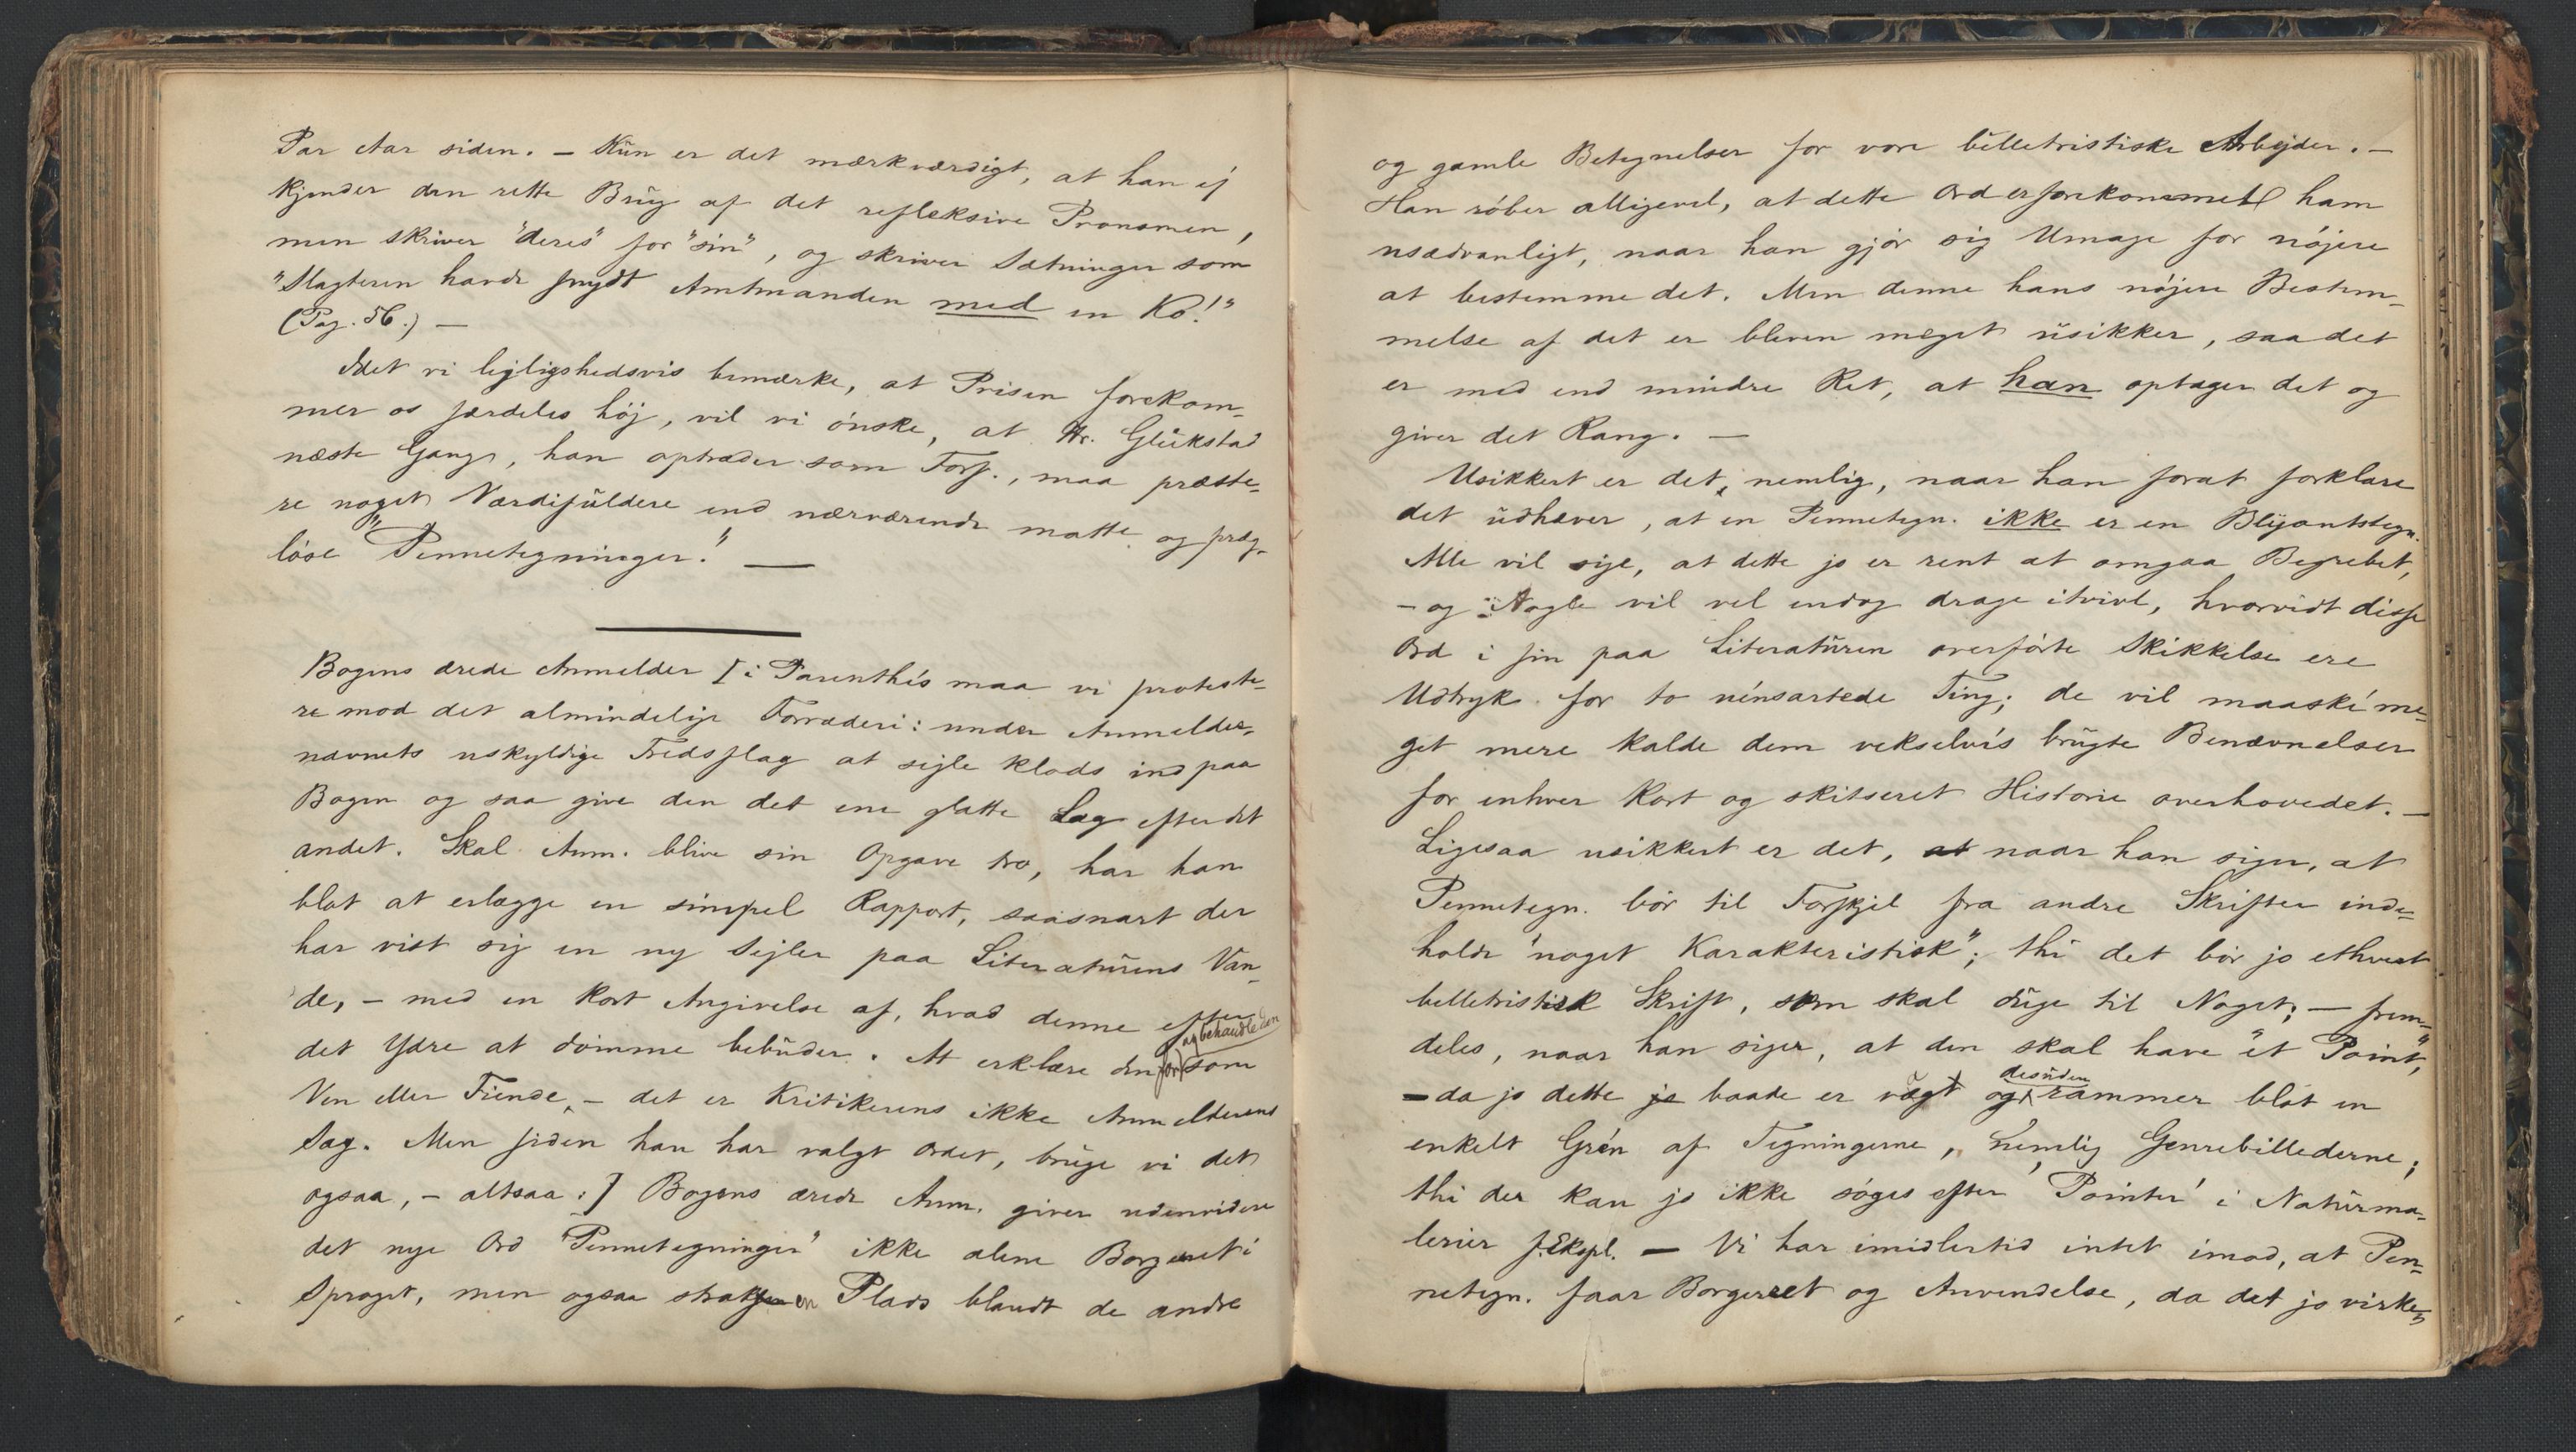 Par Aar siden. – Kun er det mærkværdigt, at han ej
kjender den rette Brug af det refleksive Pronomen,
men skriver "deres" for "sin", og skriver Sætninger som
"Slagteren havde snydt Amtmanden med en Ko!"
(Pag. 56.) –
Idet vi lejlighedsvis bemærke, at Prisen forekom-
mer os særdeles høj, vil vi ønske, at Hr. Glükstad
næste Gang, han optræder som Forf., maa præste-
re noget Værdifuldere end nærværende matte og præg-
løse "Pennetegninger." —
Bogens ærede Anmelder [i Parenthes maa vi proteste-
re mod det almindelige Forræderi: under Anmelder-
navnets uskyldige Fredsflag at sejle klods ind paa
Bogen og saa give den det ene glatte Lag efter det
andet. Skal Anm. blive sin Opgave tro, har han
blot at erlægge en simpel Rapport, saasnart der
har vist sig en ny Sejler paa Literaturens Van-
de, – med en kort Angivelse af, hvad denne efter
det Ydre at dømme bebuder. At erklære den for og behandle den som
Ven eller Fiende, – det er Kritikerens ikke Anmelderens
Sag. Men siden han har valgt Ordet, bruge vi det
ogsaa, – altsaa:] Bogens ærede Anm. giver udenvidere
det nye Ord "Pennetegninger" ikke alene Borgerret i
Sproget, men ogsaa strax en Plads blandt de andre
og gamle Betegnelser for vore belletristiske Arbejder. –
Han røber alligevel, at dette Ord er forekommet ham
usædvanligt, naar han gjør sig Umage for nøjere
at bestemme det. Men denne hans nøjere Bestem-
melse af det er bleven meget usikker, saa det
er med end mindre Ret, at han optager det og
giver det Rang. –
Usikkert er det, nemlig, naar han forat forklare
det udhæver, at en Pennetegn. ikke er en Blyantstegn.
Alle vil sige, at dette jo er rent at omgaa Begrebet,
– og Nogle vil vel endog drage itvivl, hvorvidt disse
Ord i sin paa Literaturen overførte Skikkelse ere
Udtryk for to uénsartede Ting; de vil maaské me-
get mere kalde dem vekselvis brugte Benævnelser
for enhver kort og skitseret Historie overhovedet. –
Ligesaa usikkert er det, at naar han siger, at
Pennetegn. bør til Forskjel fra andre Skrifter inde-
holde "noget Karakteristisk"; thi det bør jo ethvert
belletristisk Skrift, som skal duge til Noget; – frem-
deles, naar han siger, at den skal have "et Point",
– da jo dette jo baade er vagt og desuden rammer blot en
enkelt Grén af Tegningerne, nemlig Genrebillederne;
thi der kan jo ikke søges efter 'Pointer' i Naturma-
lerier f. Ekspl. – Vi har imidlertid intet imod, at Pen-
netegn. faar Borgerret og Anvendelse, da det jo virke-